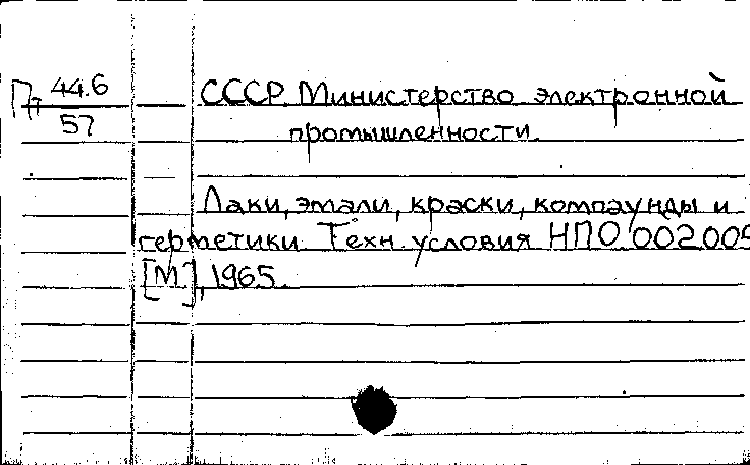 П 44.6
57
СССР. Министерство электронной
промышленности.
Лаки, эмали, краски, компаунды и
герметики. Техн. условия НПО.002005
[М], 1965.